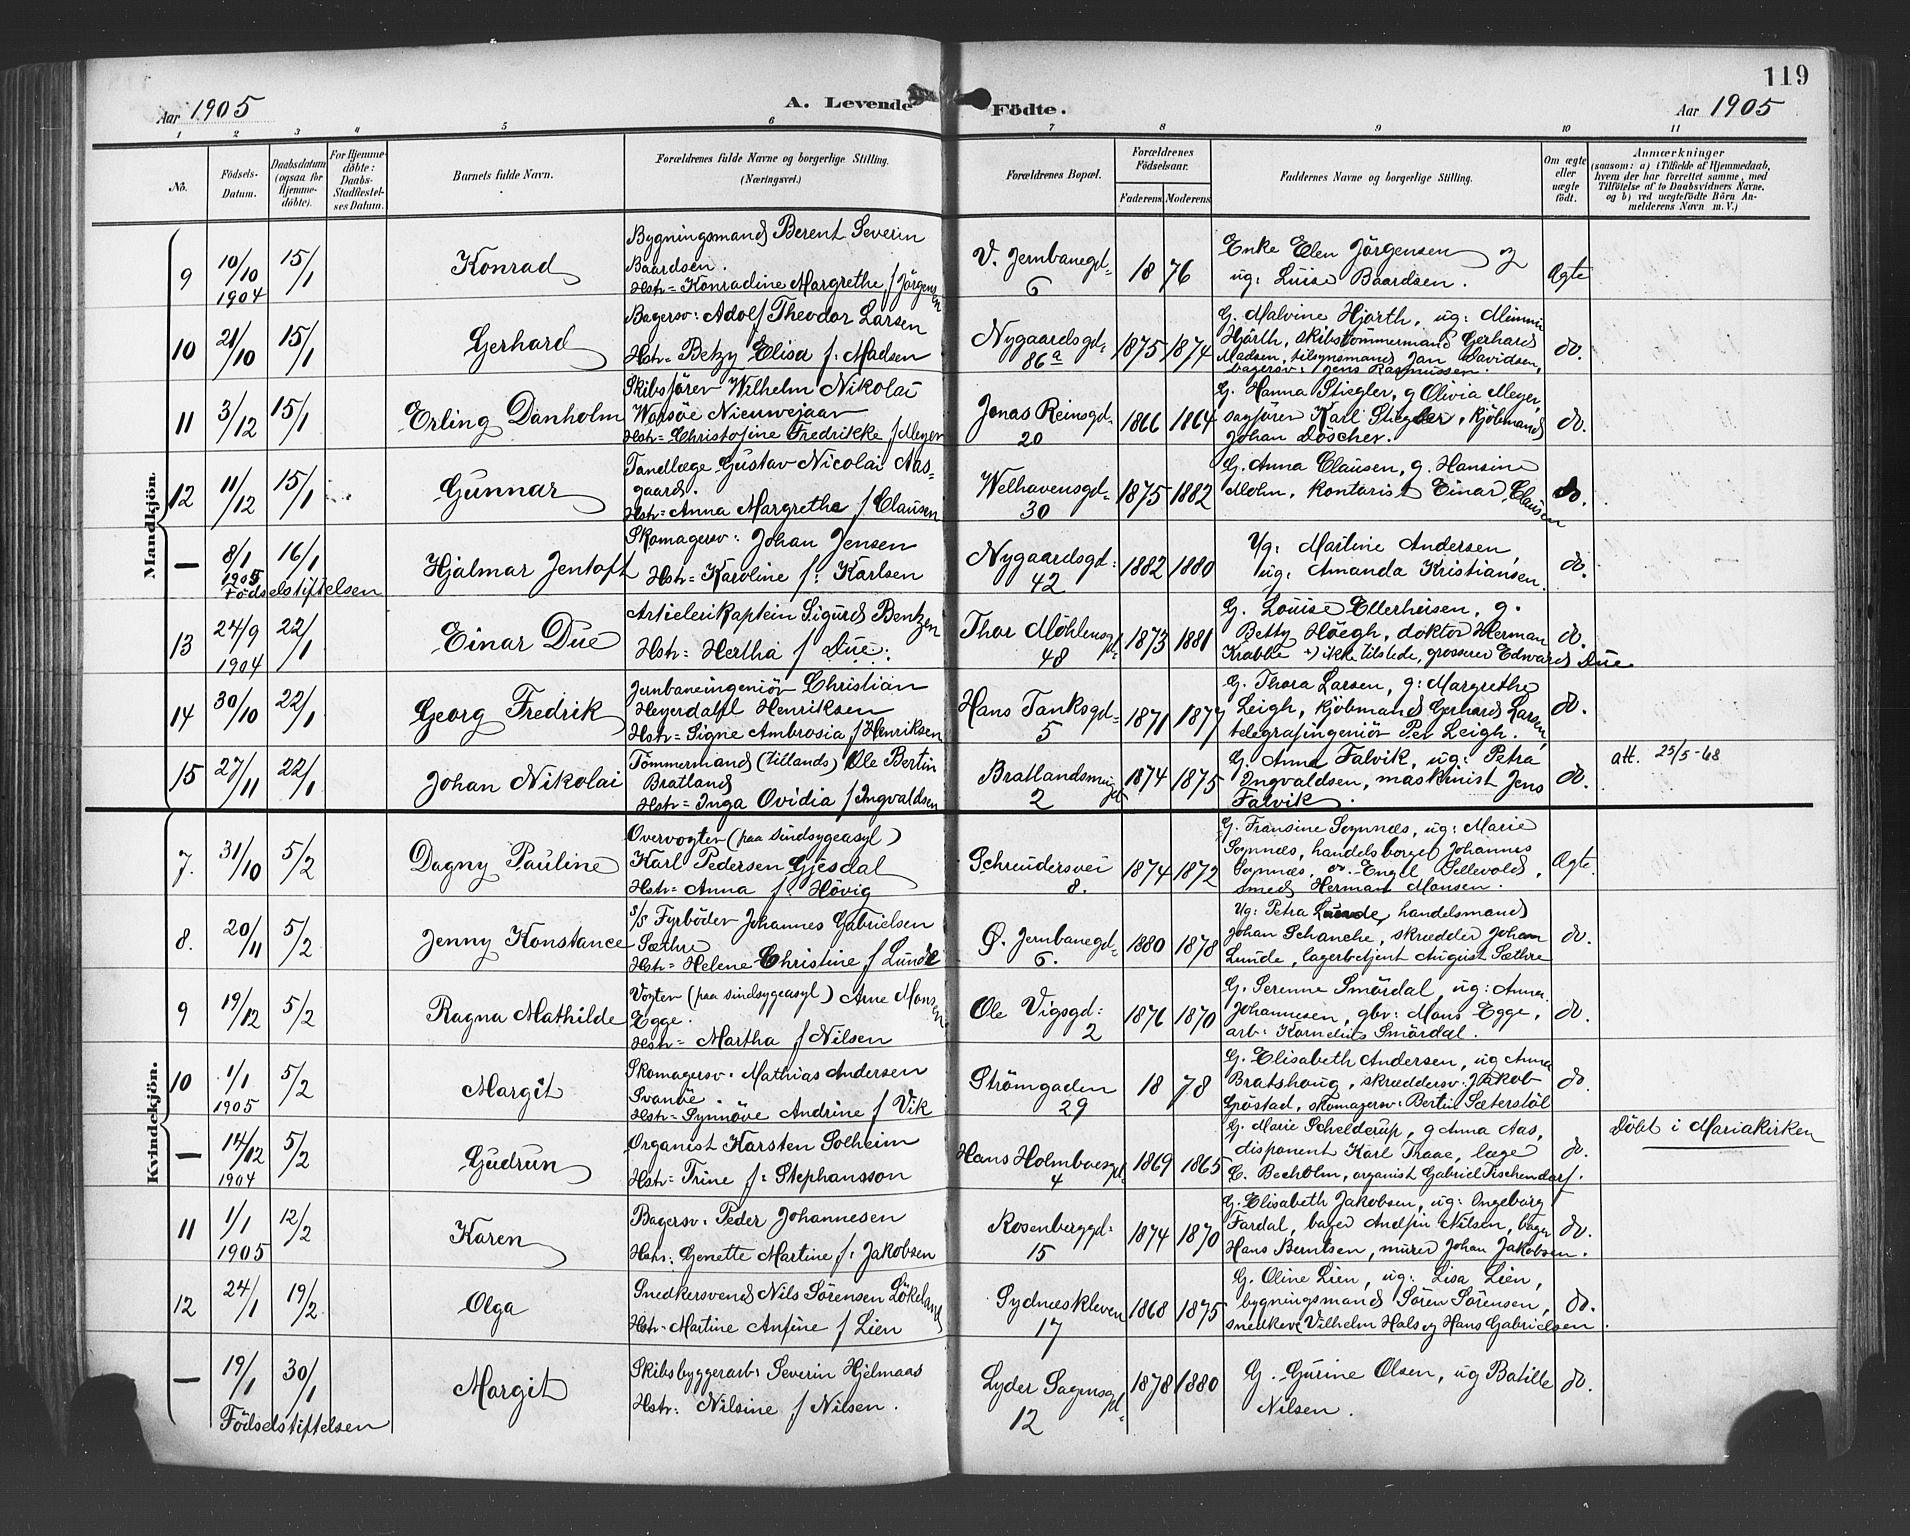 119
Aar 1905
A. Levende Födte.
Aar 1905
1 2 3 4 5 6 7 8 9 10 11
No.
Födsels-
Datum.
Daabsdatum
(ogsaa for
Hjemme-
döbte).
For Hjemme-
döbte:
Daabs-
Stadfæstel-
ses Datum.
Barnets fulde Navn.
Forældrenes fulde Navne og borgerlige Stilling.
(Næringsvei.)
Forældrenes Bopæl.
Forældrenes
Födselsaar.
Faderens. Moderens.
Faddernes Navne og borgerlige Stilling.
Om ægte
eller
uægte
födt.
Anmærkninger
(saasom: a) i Tilfælde af Hjemmedaab,
hvem der har forrettet samme, med
Tilföielse af to Daabsvidners Navne,
og b) ved uægtefödte Börn An-
melderens Navn m. V.)
Mandkjön.
9
10/10
1904
15/1
Konrad
Bygningsmand Berent Severin
Baardsen.
Hstr= Konradine Margrethe f Jörgensen
V. Jernbanegd=
6
18 76
Enke Elen Jörgensen og
ug: Luise Baardsen.
Ægte
10
21/10
15/1
Gerhard
Bagersv: Adolf Theodor Larsen
Hstr= Betzy Elisa f: Madsen
Nygaardsgd=
86a
1875 1874
G. Malvine Hjorth, ug: Mimmi
Hjörth, skibstömmermand Gerhard
Madsen, tilsynsmand Jan Davidsen,
bagersv: Jens Rasmussen.
do.
11
3/12
15/1
Erling Danholm
Skibsförer Wilhelm Nikolai
Warsöe Nieuwejaar
Hstr= Christofine Fredrikke f Meyer
Jonas Reinsgd=
20
1866 1864
G. Hanna Stiegler, g Olivia Meyer,
sagförer Karl Stiegler, kjöbmand
Johan Döscher.
do.
12
11/12
15/1
Gunnar
Tandlæge Gustav Nicolai Aas=
gaard.
Hstr= Anna Margrethe f Clausen
Welhavensgd=
30
1875 1882
G. Anna Clausen, g. Hansine
Mohn, kontorist Einar Clausen
do.
—
8/1
1905
16/1
Födselstiftelsen
Hjalmar Jentoft
Skomagersv: Johan Jensen
Hstr= Karoline f: Karlsen
Nygaardsgd:
42
1882 1880
Ug: Martine Andersen,
ug: Amanda Kristiansen.
do.
13
24/9
1904
22/1
Einar Due
Artielerikaptein Sigurd Bentzen
Hstr= Hertha f Due:
Thor Möhlensgd=
48
1873 1881
G. Louise Ellerhusen, g.
Betty Höegh, doktor Herman
Krabbe +) ikke tilstede, grosserer Edward Due
do.
14
30/10
22/1
Georg Fredrik
Jernbaneingeniör Christian
Heyerdahl Henriksen
Hstr= Signe Ambrosia f Henriksen
Hans Tanksgd=
5
1871 1877
G. Thora Larsen, g: Margrethe
Leigh, kjöbmand Gerhard Larsen,
telegrafingeniör Per Leigh.
do.
15
27/11
22/1
Johan Nikolai
Tömmermand (tillands) Ole Bertin
Bratland
Hstr= Inga Ovidia f Ingvaldsen
Bratlandsmuget
2
1874 1875
G. Anna Falvik, ug: Petra
Ingvaldsen, maskinist Jens
Falvik.
do.
att. 23/5-48
Kvindekjön.
7.
31/10
5/2
Dagny Pauline
Overvogter (paa sindsygeasyl)
Karl Pedersen Gjesdal
Hstr= Anna f: Hövig
Schreudersvei
8.
1874 1872
G. Fransine Sognnæs, ug: Marie
Sognnæs, handelsborger Johannes
Sognnæs, Engel Sellevold,
smed Herman Monsen.
Ægte.
8.
20/11
5/2
Jenny Konstance
s/s Fyrböder Johannes Gabrielsen
Sæthre
Hstr= Helene Christine f Lunde
Ö. Jernbanegd=
6.
1880 1878
Ug: Petra Lunde, handelsmand
Johan Schanche, skrædder Johan
Lunde, lagerbetjent August Sæthre
do.
9
19/12
5/2
Ragna Mathilde
Vogter (paa sindsygeasyl) Arne Monsen
Egge.
Hstr= Martha f Nilsen
Ole Vigsgd:
2
1876 1870
G. Serenne Smördal, ug: Anna
Johannesen, gbr: Mons Egge,
arb: Kornelius Smördal.
do.
10
1/1
1905
5/2
Margit
Skomagersv. Mathias Andersen
Svanöe
Hstr= Synnöve Andrine f Vik
Strömgaden
29
18 78
G. Elisabeth Andersen, ug Anna
Bratshaug, skræddersv: Jakob
Gröstad, skomagersv: Bertin Sæterstöl
do.
—
14/12
1904
5/2
Gudrun
Organist Karsten Solheim
Hstr= Trine f: Stephansson
Hans Holmboesgd=
4
1869 1865
G. Marie Schelderup, g Anna Aas,
disponent Karl Traae, læge
C. Becholm, organist Gabriel Tischendorf.
do.
Döbt i Mariakirken
11
1/1
1905
12/2
Karen
Bagersv: Peder Johannesen
Hstr: Genette Martine f: Jakobsen
Rosenberggd:
15
1874 1870
G. Elisabeth Jakobsen, ug: Ingeborg
Fardal, bager Andfin Nilsen, bager
Hans Berntsen, murer Johan Jakobsen.
do.
12
24/1
19/2
Olga
Snedkersvend Nils Sörensen Lökeland
Hstr= Martine Anfine f Lien
Sydnæskleven
17
1868 1875
G. Oline Lien, ug: Lisa Lien,
bygningsmand Sören Sörensen,
snedkere Vilhelm Hals og Hans Gabrielsen.
do.
—
19/1
30/1
Födselstiftelsen
Margit
Skibsbyggerarb: Severin Hjelmaas
Hstr: Nilsine f Nilsen.
Lyder Sagensgd=
12
1878 1880
G. Gurine Olsen, ug Botille
Nilsen.
do.